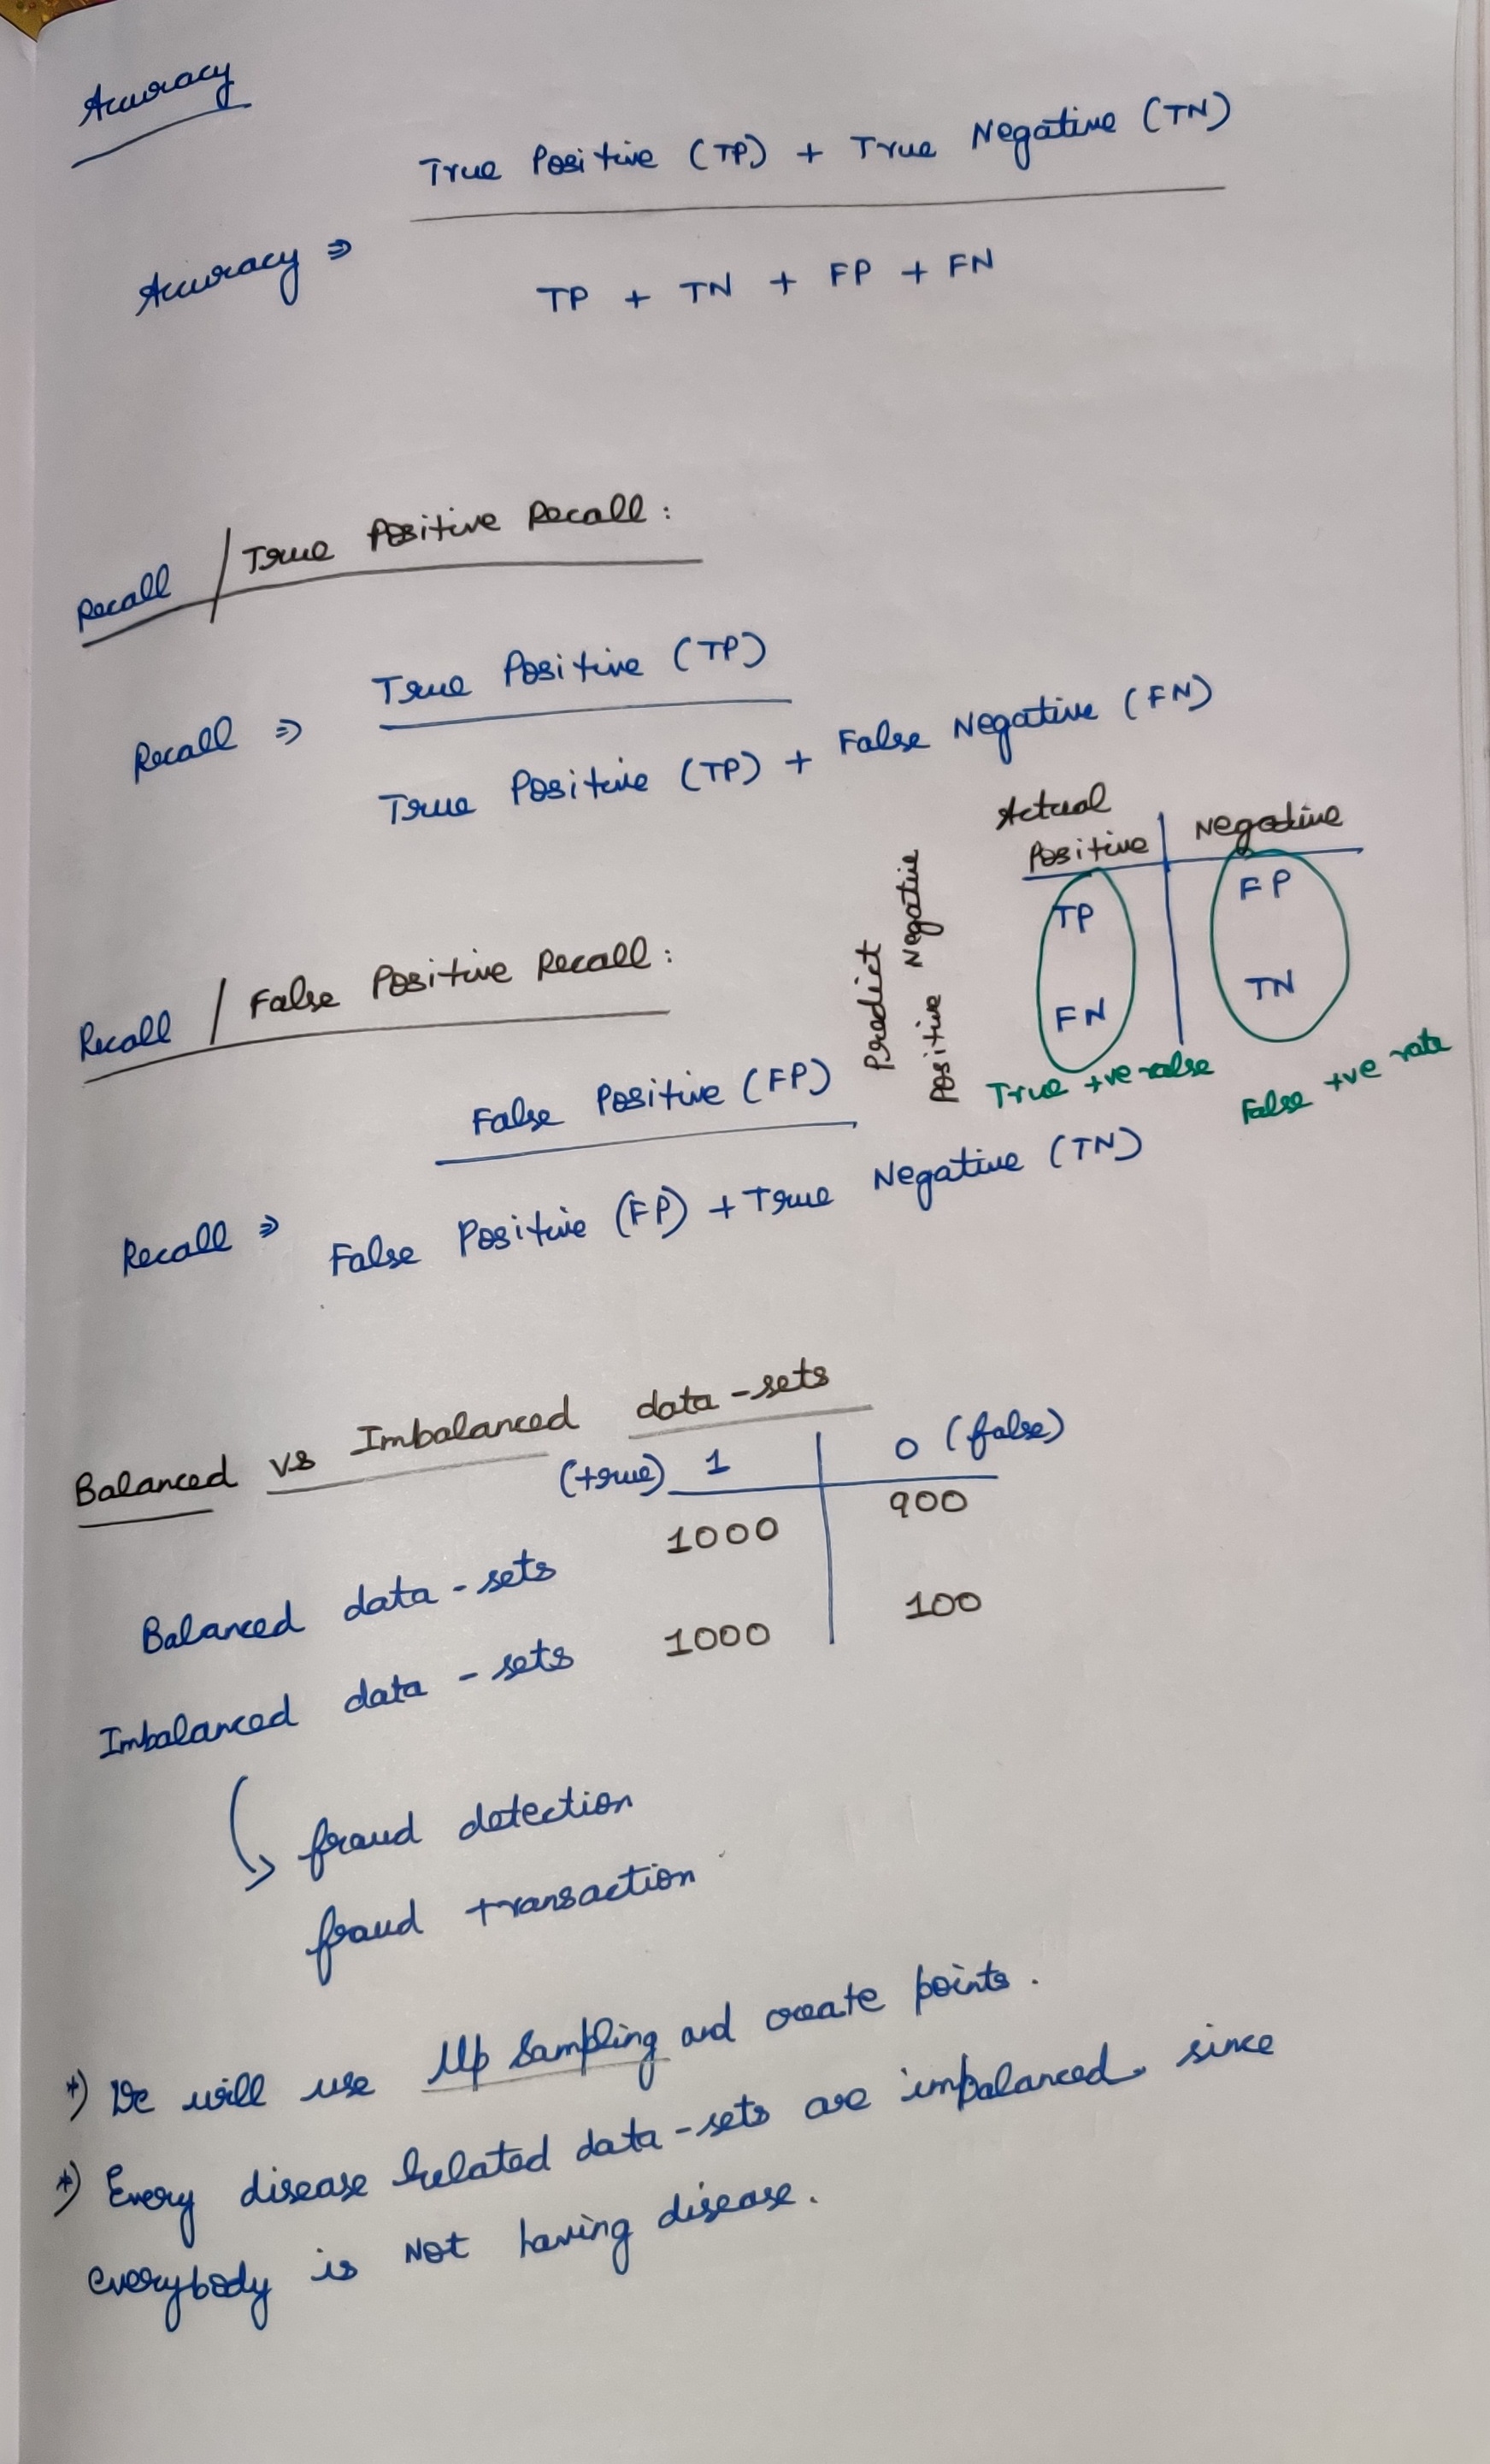 Accuracy
True Positive (TP) + True Negative (TN)
Accuracy ⇒
TP + TN + FP + FN
Recall / True Positive Recall :
True Positive (TP)
Recall ⇒
True Positive (TP) + False Negative (FN)
Actual
Positive Negative
Predict
Positive Negative
TP FP
FN TN
True +ve
False +ve rate
Recall / False Positive Recall :
False Positive (FP)
Recall ⇒
False Positive (FP) + True Negative (TN)
Balanced vs Imbalanced data-sets
(true) 1 0 (false)
Balanced data-sets 1000 900
Imbalanced data-sets 1000 100
fraud detection
fraud transaction
*) We will use Up Sampling and create points.
*) Every disease related data-sets are imbalanced. since
everybody is Not having disease.